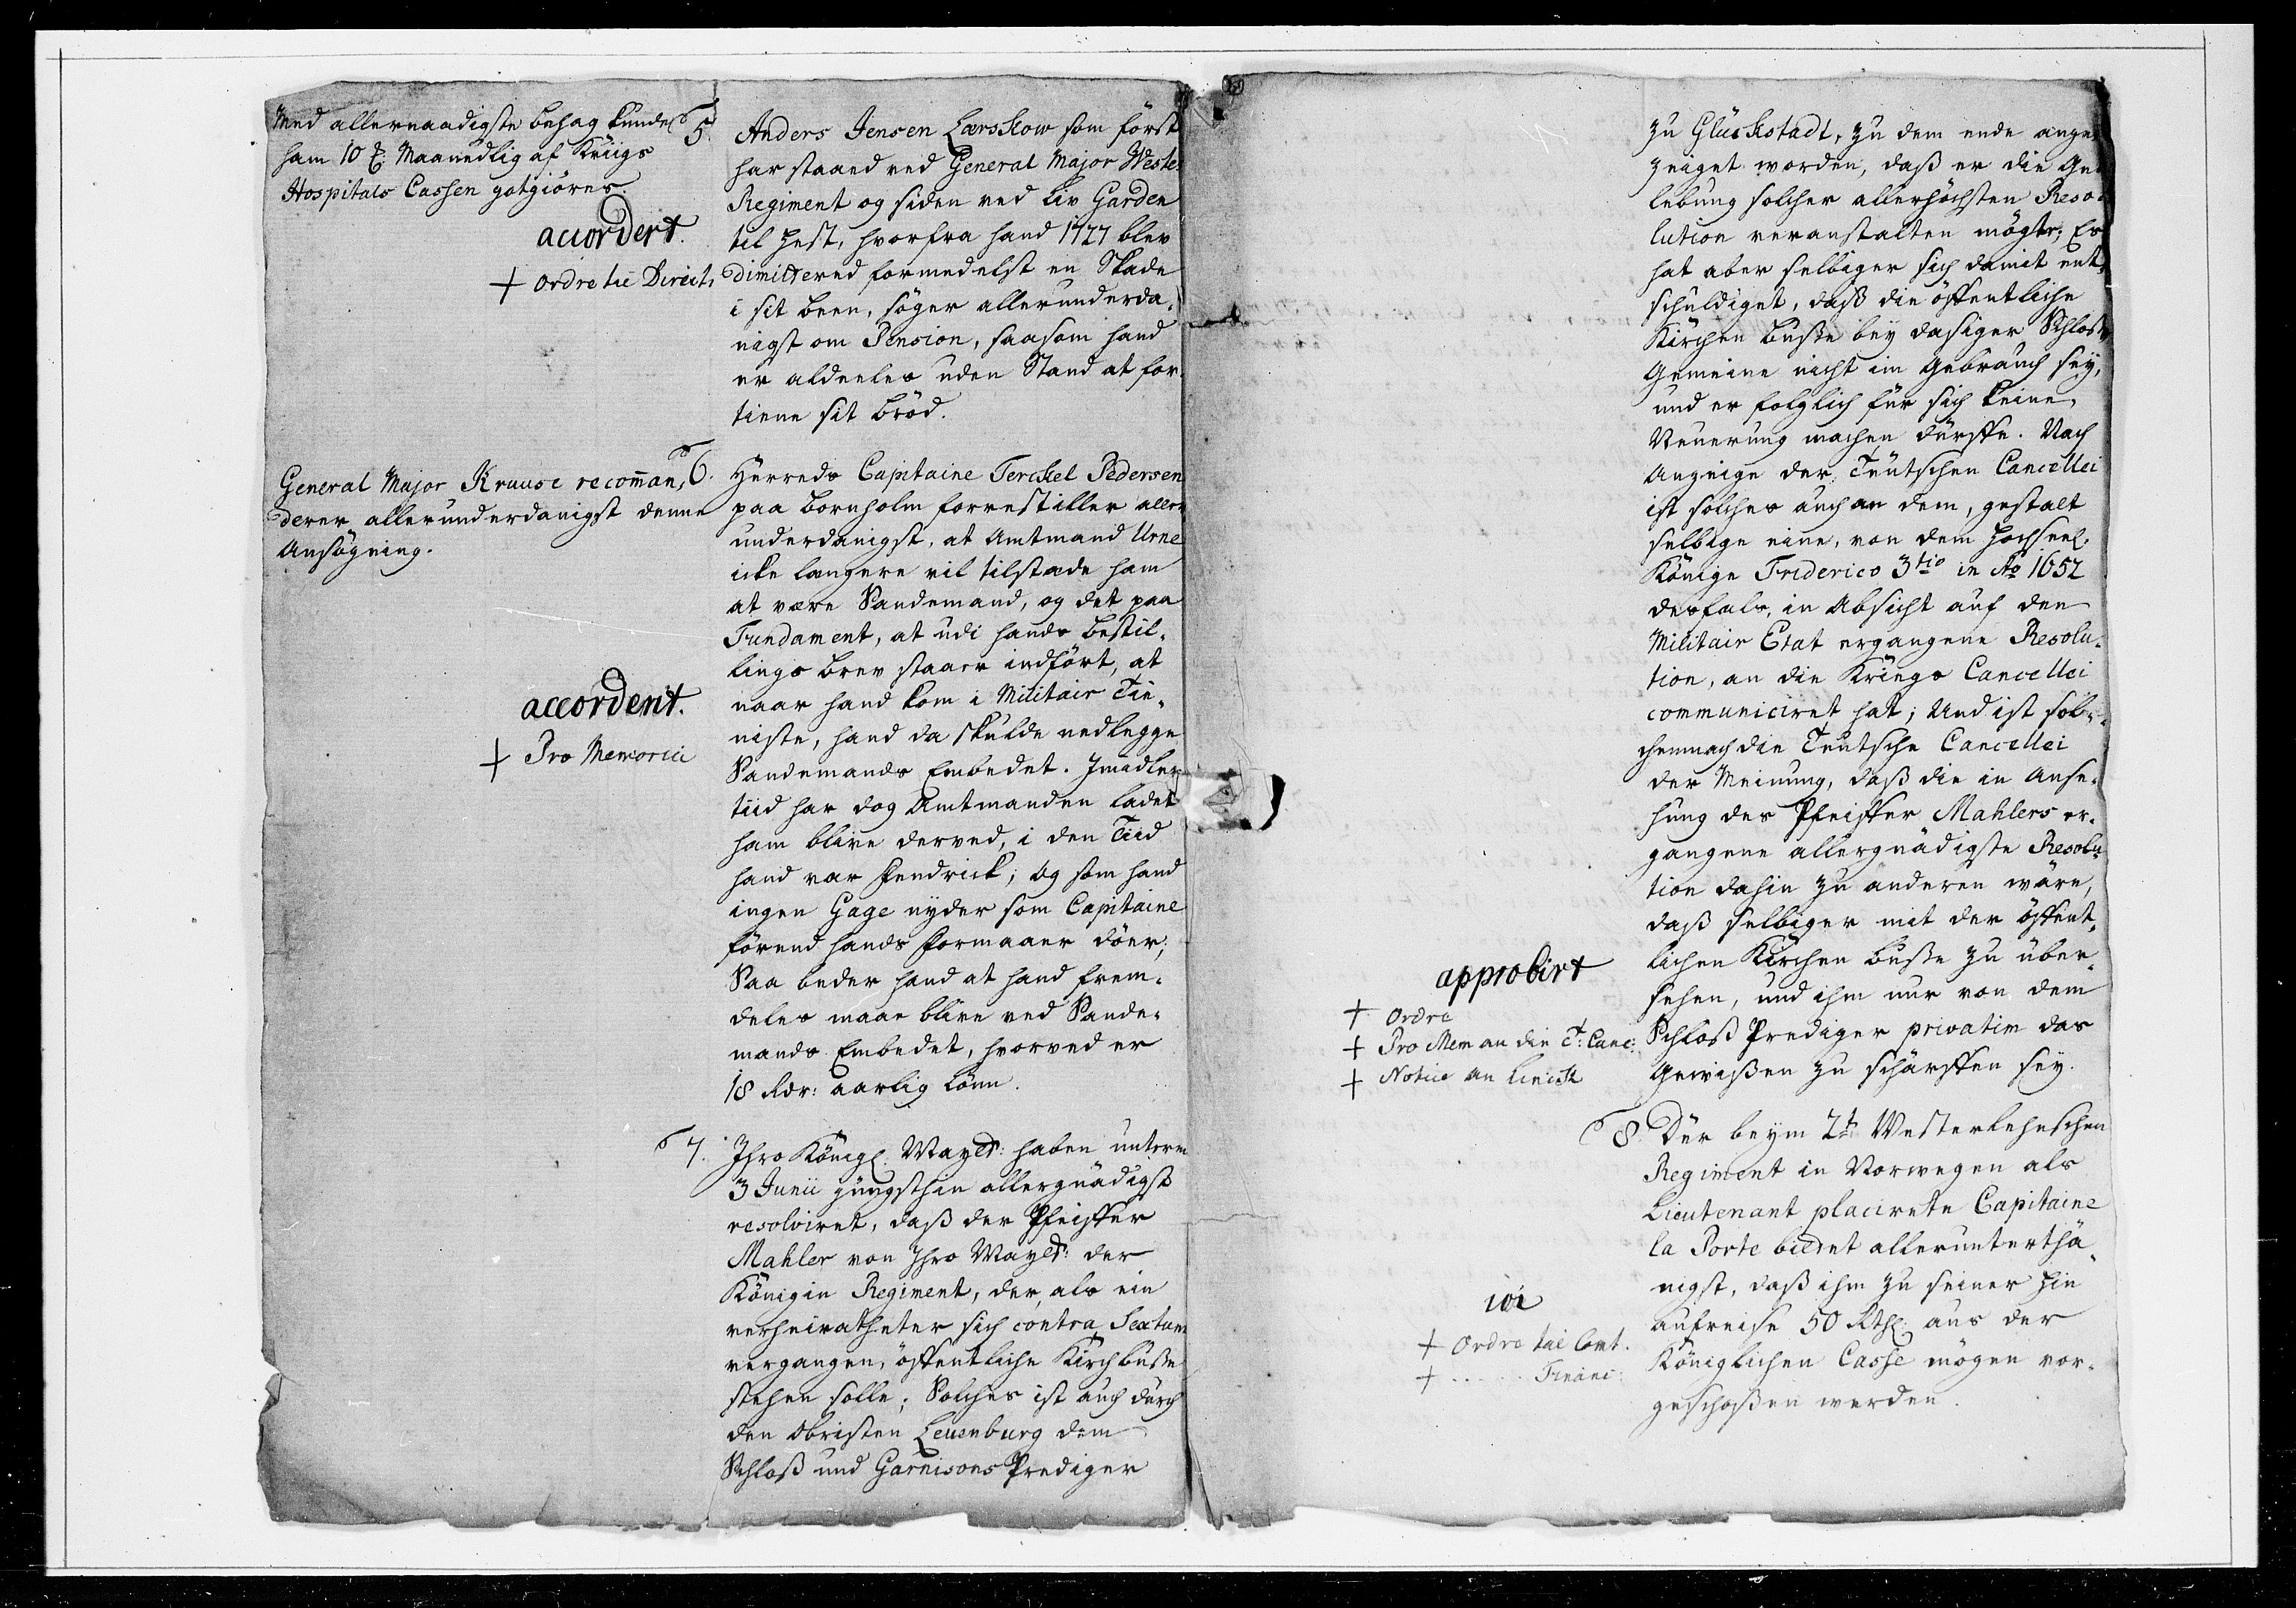 Med allernaadigste behag kunde
ham 10 ß: Maanedlig af Kriigs
Hospitals Cassen gotgiöres.
accordert.
+ Ordre til Direct:
5. Anders Jensen Larskow som först
har staaed ved General Major Weste
Regiment og siden ved Liv Garden
til Hest, hvorfra hand 1727 blev
dimittered formedelst en Skade
i sit been, söger allerunderda-
nigst om Pension, saasom hand
er aldeeles uden Stand at for-
tiene sit bröd.
General Major Kruuse recomman-
derer allerunderdanigst denne
Ansögning.
accordert.
+ Pro Memoria
6. Herreds Capitaine Terckel Pedersen
paa Bornholm forrestiller aller-
underdanigst, at Amtmand Urne
icke længere vil tilstæde ham
at være Sandemand, og det paa
Fundament, at udi hands bestil-
lings brev staaer indfört, at
naar hand kom i Militair Tie-
niste, hand da skulde nedlegge
Sandemands Embedet. Imidler-
tiid har dog Amtmanden ladet
ham blive derved, i den Tiid
hand var Fendrick; og som hand
ingen Gage nyder som Capitaine
förend hands Formaaer döer;
Saa beder hand at hand frem-
deles maae blive ved Sande-
mands Embedet, hvorved er
18 Rdr: aarlig Lönn.
7. Ihro Königl. Mayst: haben unterm
3 Junii jüngsthin allergnädigst
resolviret, daß der Pfeiffer
Mahler von Ihro Mayst: der
Königin Regiment, der, als ein
verheiratheter sich contra Sextum
vergangen, öffentliche Kirchbuße
stehen solle; Solches ist auch durch
den Obristen Leuenburg dem
Schloß und Garnisons Prediger
zu Glückstadt, zu dem ende ange-
zeiget worden, daß er die Ge-
lebung solcher allerhöchsten Reso-
lution veranstalten mögte; Es
hat aber selbiger sich damit ent-
schuldiget, daß die öffentliche
Kirchen buße bey dasiger Schloß
Gemeine nicht im Gebrauch sey,
und er folglich für sich keine
Neuerung machen dürffe. Nach
Anzeige der Teutschen Cancellei
ist solches auch an dem, gestalt
selbige eine, von dem Hochseel.
Könige Friderico 3tio in Ao 1652
desfals, in Absicht auf den
Militair Etat ergangene Resolu-
tion, an die Kriegs Cancellei
communiciret hat; Und ist sol-
chemnach die Teutsche Cancellei
der Meinung, daß die in Anse-
hung des Pfeiffer Mahlers er-
gangene allergnädigste Resolu-
tion dahin zu anderen wäre,
daß selbiger mit der öffent-
lichen Kirchen buße zu über-
sehen, und ihm nur von dem
Schloß Prediger privatim das
Gewißen zu schärffen sey.
approbirt
+ Ordre
+ Pro Mem an die T: Canc:
+ Notice an
8. Der beym 2t Westerlehnschen
Regiment in Norwegen als
Lieutenant placirete Capitaine
la Porte bittet allerunterthä-
nigst, daß ihm zu seiner Hin-
aufreise 50 Rthl: aus der
Königlichen Casse mögen vor-
geschoßen werden.
+ Ordre
+ ..... Financ: